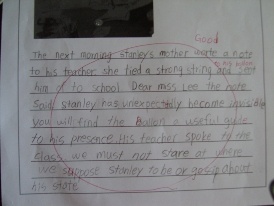 Good
The next morning stanley's mother wrote a note
to his teacher she tied a strong string and sent
him to school. Dear miss Lee the note
Said stanley has unexpectedly become invisible
you will find the Ballon a useful guide
to his presence. His teacher spoke to the
class we must not stare at where
we suppose stanley to be or gossip about
his state